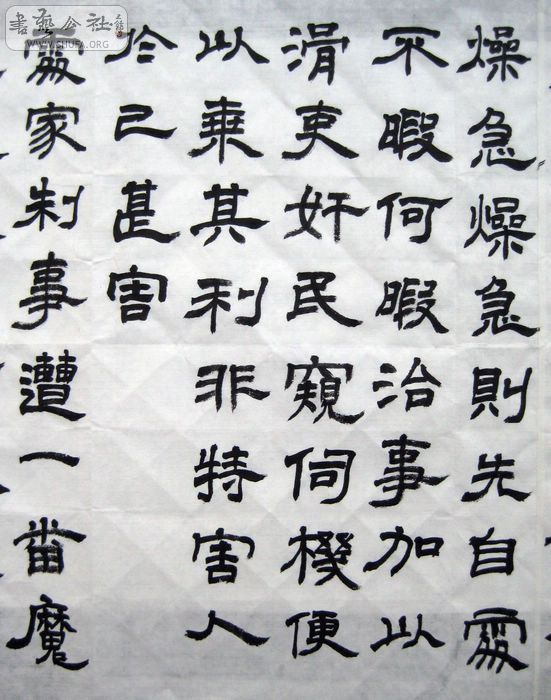 書藝公社
WWW.SHUFA.ORG
燥急燥急則先自處
不暇何暇治事加以
滑吏奸民窺伺機便
以乘其利非特害人
於己甚害
處家制事遭一番魔